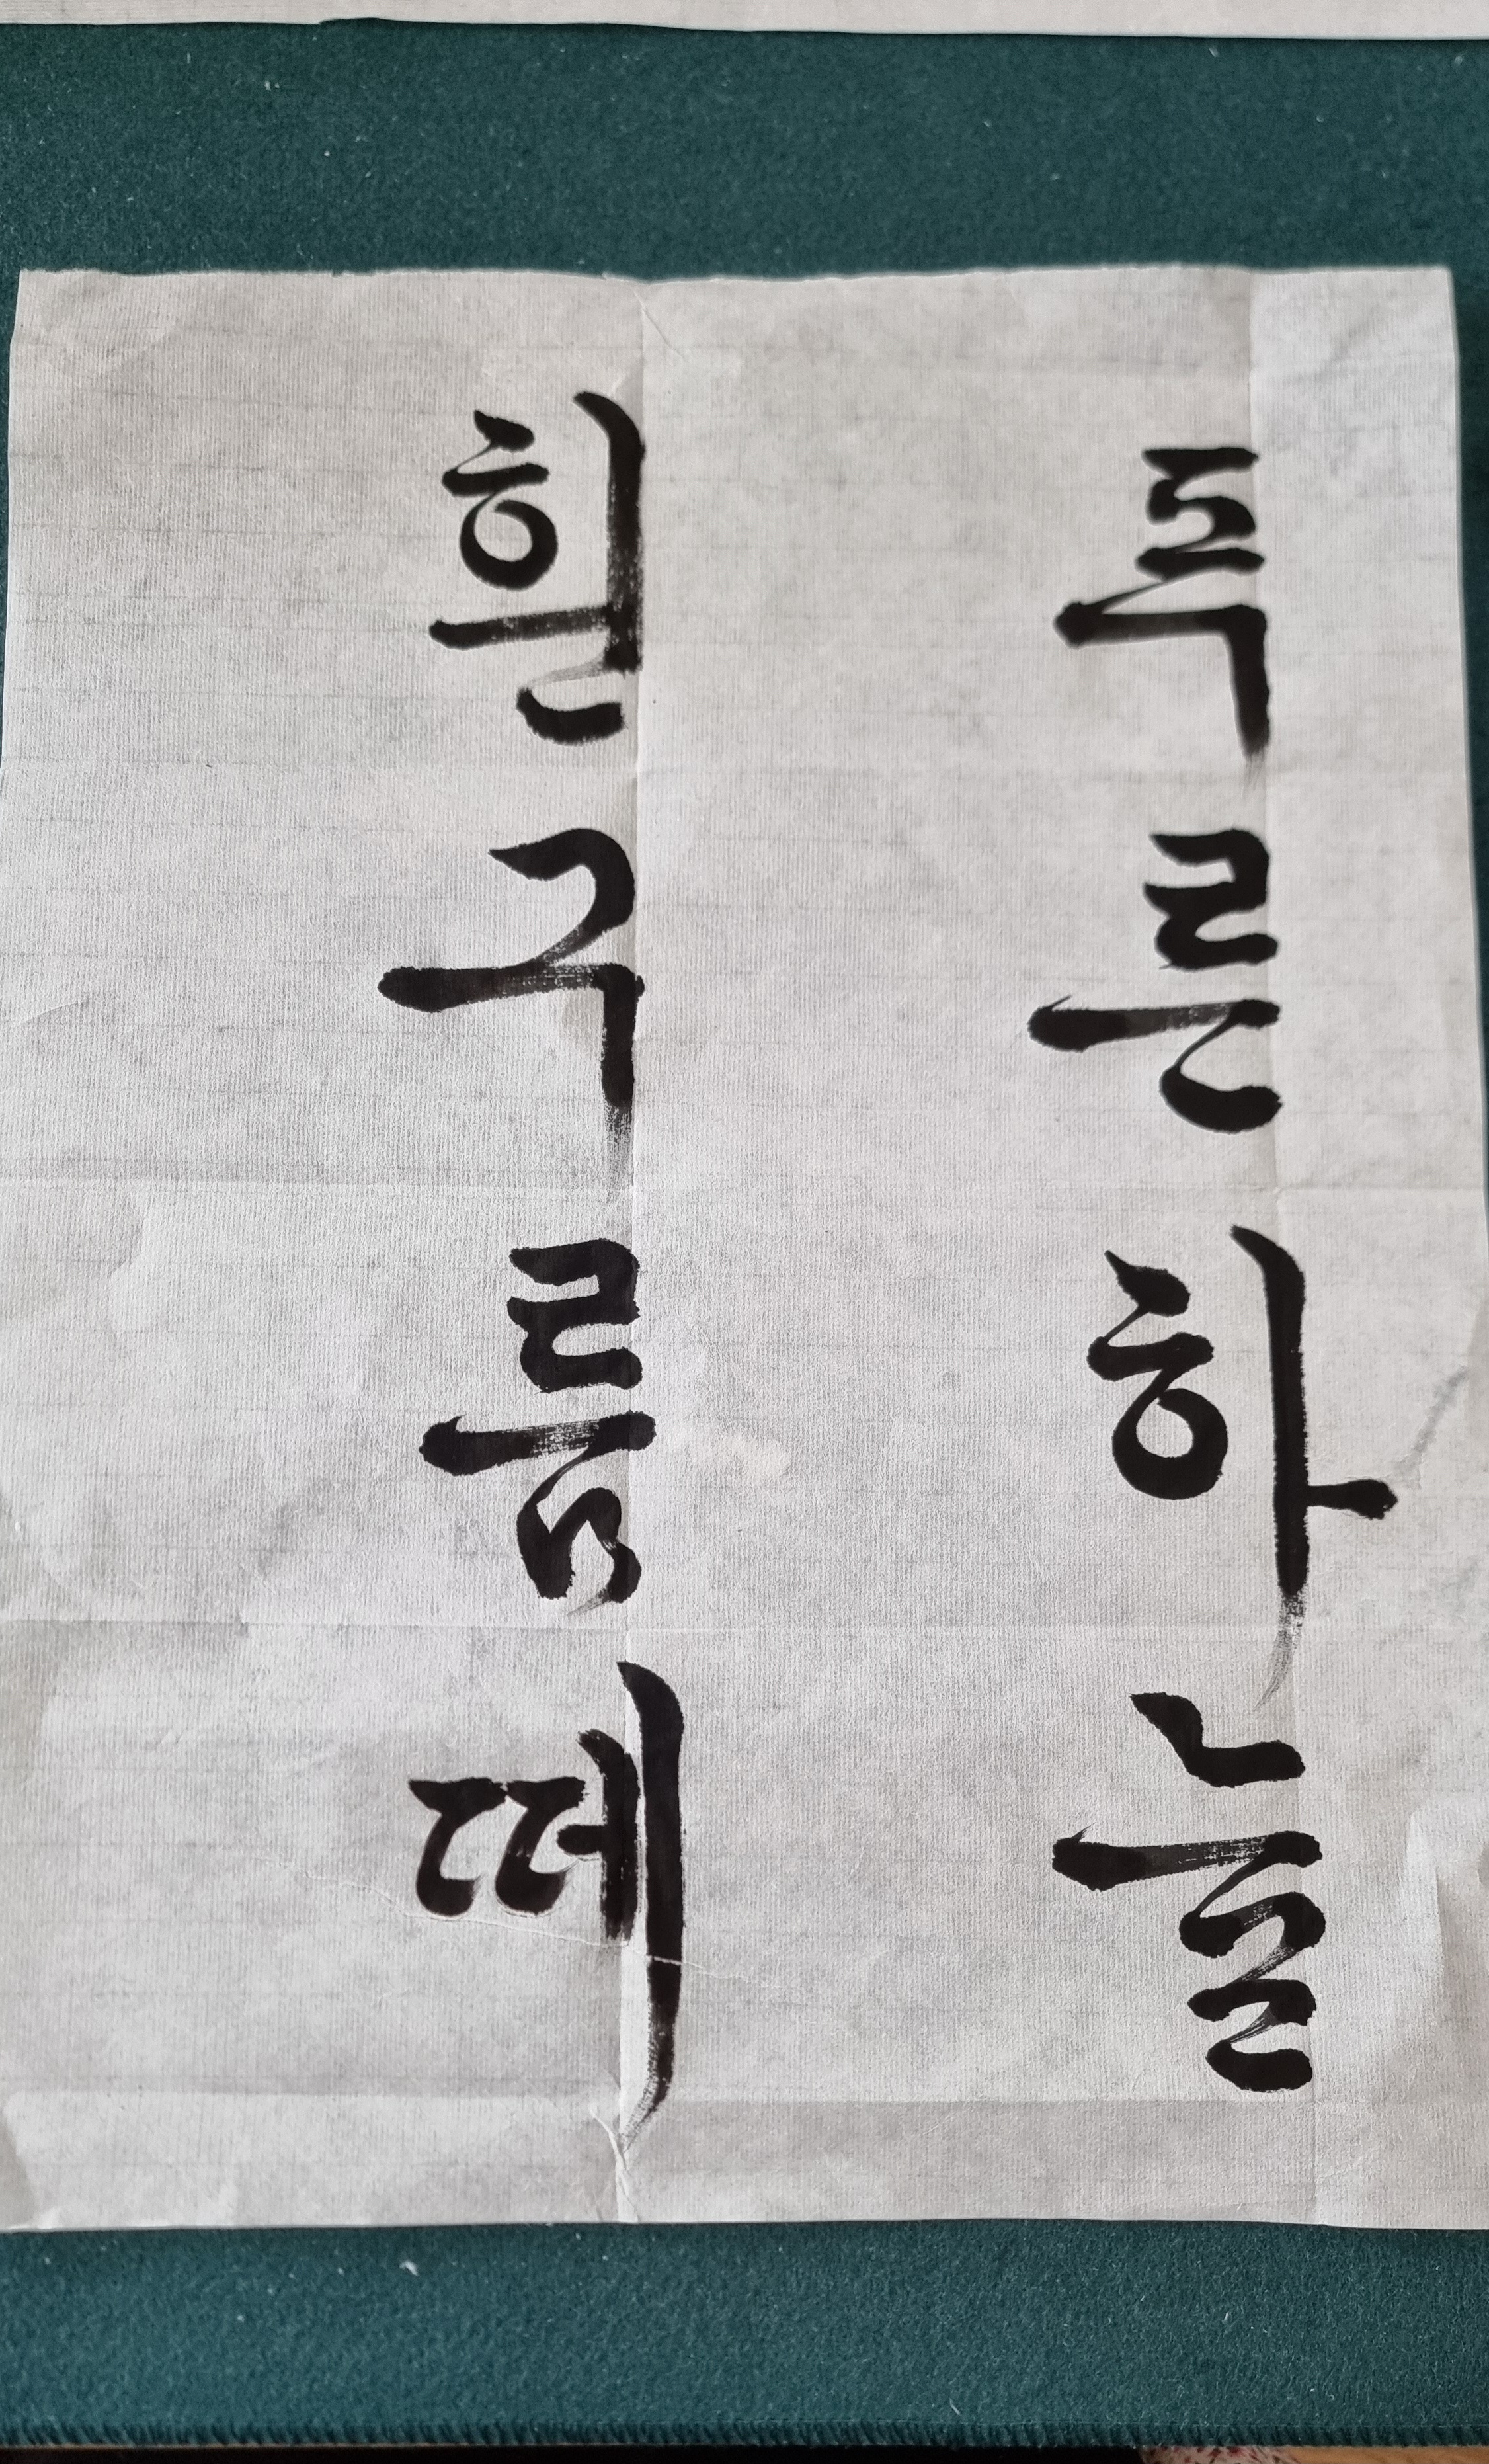 푸른하늘
흰구름떼